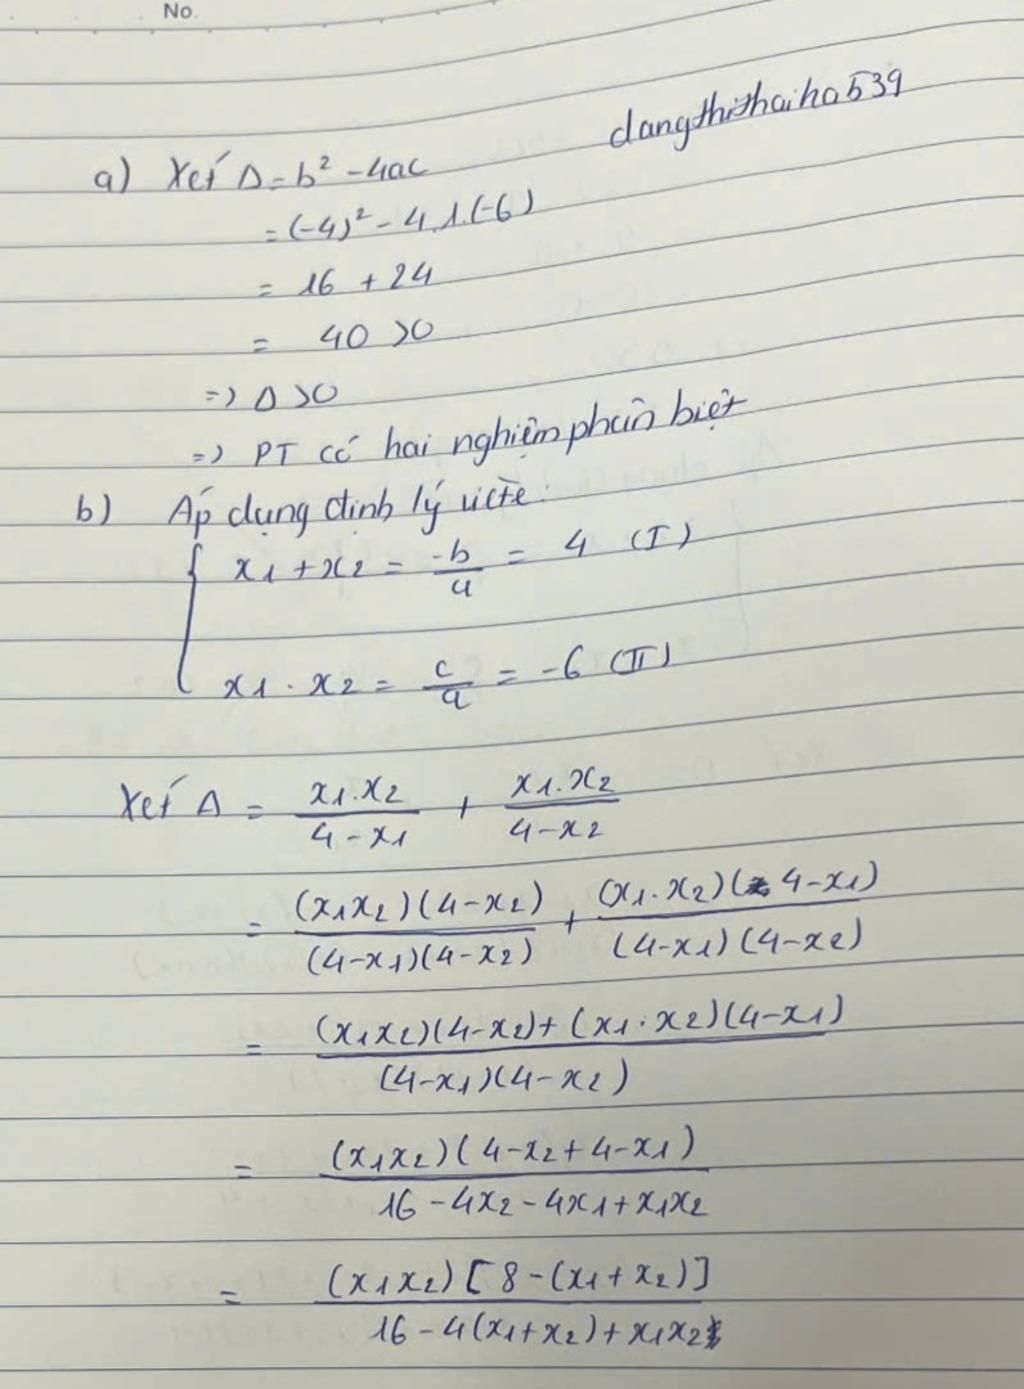 No.
dangthithaiha539
a) Xét Δ = b² - 4ac
= (-4)² - 4.1.(-6)
= 16 + 24
= 40 > 0
=> Δ > 0
=> PT có hai nghiệm phân biệt
b) Áp dụng định lý viète:
{ x1 + x2 = -b/a = 4 (I)
x1 . x2 = c/a = -6 (II)
Xét Δ = x1.x2/(4 - x1) + x1.x2/(4 - x2)
= (x1x2)(4-x2)/(4-x1)(4-x2) + (x1.x2)(4-x1)/(4-x1)(4-x2)
= (x1x2)(4-x2) + (x1.x2)(4-x1)/(4-x1)(4-x2)
= (x1x2)(4-x2+4-x1)/16 - 4x2 - 4x1 + x1x2
= (x1x2)[8 - (x1 + x2)]/16 - 4(x1+x2) + x1x2